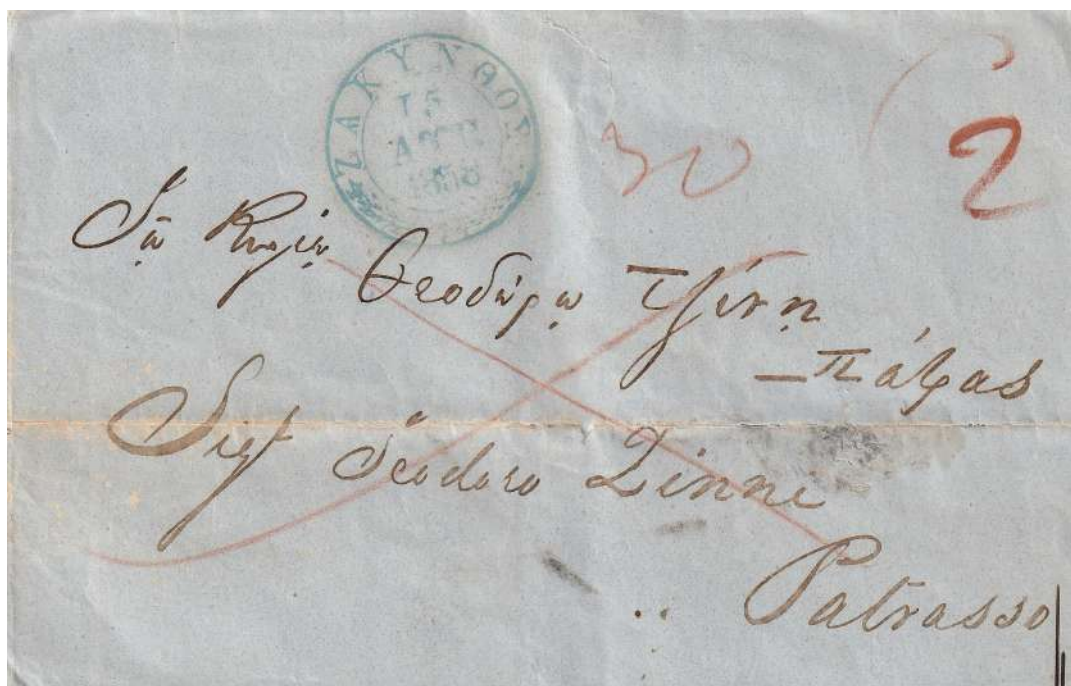 ΖΑΚΥΝΘΟΣ
15
30
2
Τῷ Κυρίῳ
Θεοδώρῳ Τζίνῃ
Πάτρας
Sigr Teodoro Zinni
Patrasso